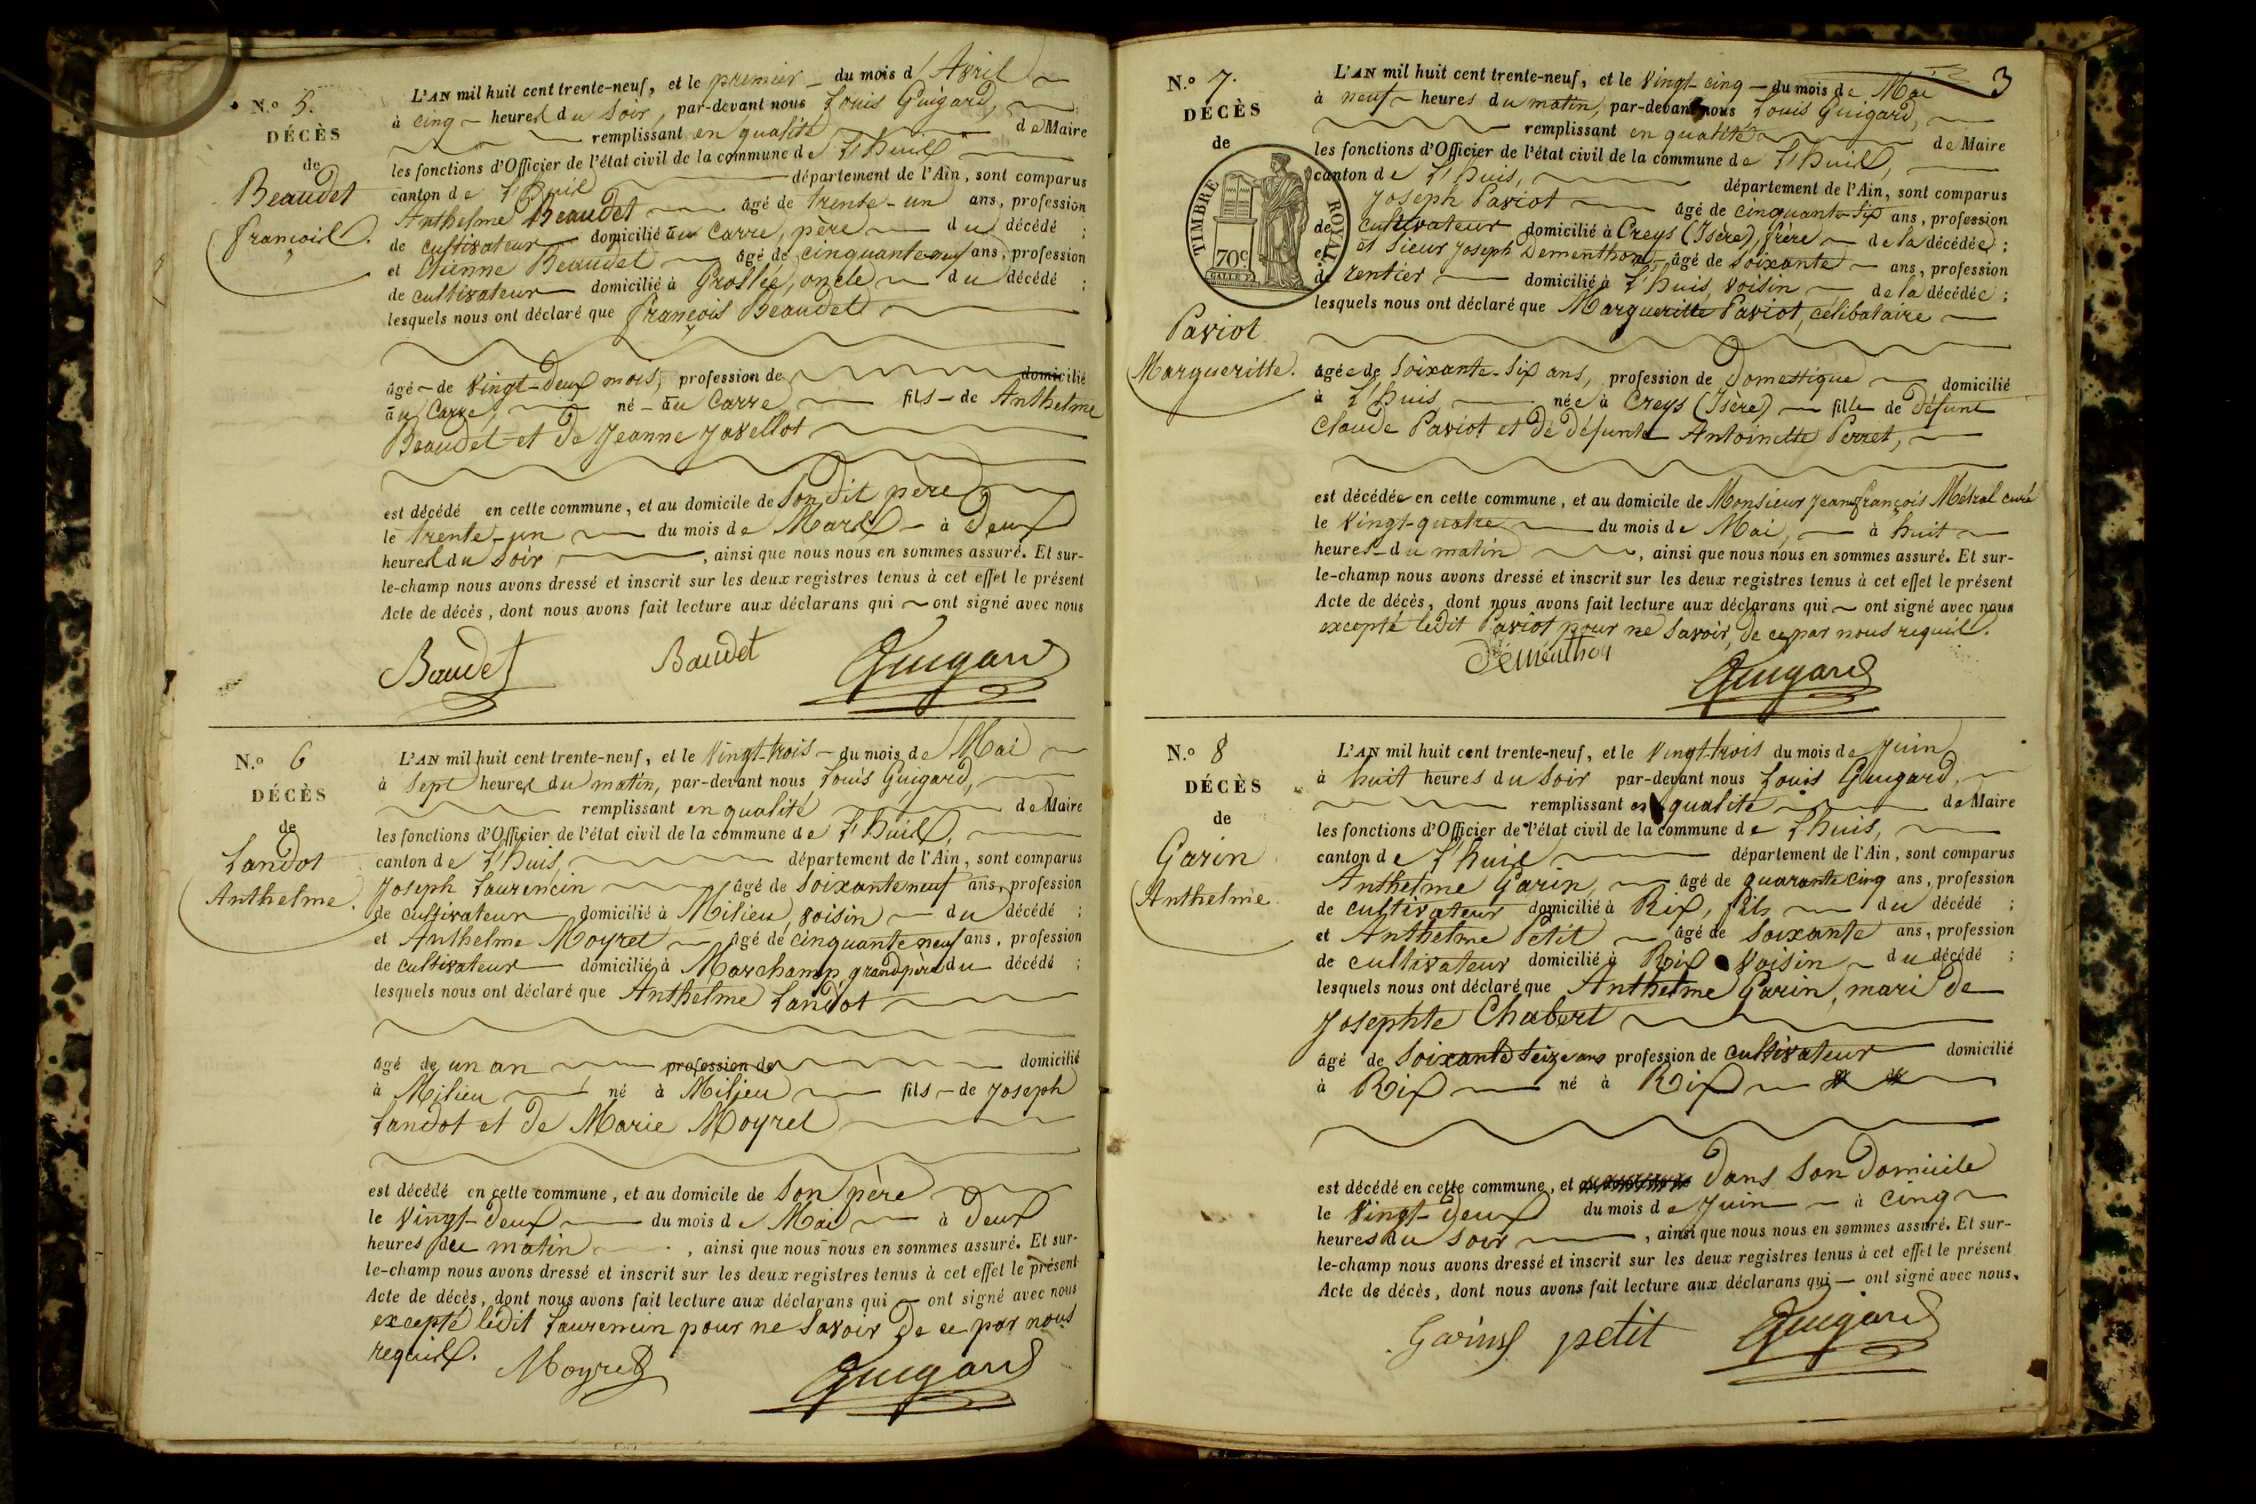 N.o 5.
DÉCÈS
de
Beaudet
françois.
L'AN mil huit cent trente-neuf, et le premier du mois d'Avril
à cinq heures du soir, par-devant nous Louis Guigard,
remplissant en qualité de Maire
les fonctions d'Officier de l'état civil de la commune de L'huis
canton de L'huis département de l'Ain, sont comparus
Anthelme Beaudet âgé de trente-un ans, profession
de cultivateur domicilié au Carre, père du décédé ;
et Etienne Beaudet âgé de cinquante neuf ans, profession
de cultivateur domicilié à Groslée, oncle du décédé ;
lesquels nous ont déclaré que françois Beaudet
âgé de vingt-deux mois, profession de domicilié
au Carre, né au Carre fils de Anthelme
Beaudet et de Jeanne Javellot
est décédé en cette commune, et au domicile de son dit père
le trente-un du mois de Mars à deux
heures du soir, ainsi que nous nous en sommes assuré. Et sur-
le-champ nous avons dressé et inscrit sur les deux registres tenus à cet effet le présent
Acte de décès, dont nous avons fait lecture aux déclarans qui ont signé avec nous
Baudet Baudet Guigard
N.o 6
DÉCÈS
de
Landot
Anthelme.
L'AN mil huit cent trente-neuf, et le vingt-trois du mois de Mai
à sept heures du matin, par-devant nous Louis Guigard,
remplissant en qualité de Maire
les fonctions d'Officier de l'état civil de la commune de L'huis,
canton de L'huis, département de l'Ain, sont comparus
Joseph Laurencin âgé de soixante neuf ans, profession
de cultivateur domicilié à Milieu, voisin du décédé ;
et Anthelme Moyret âgé de cinquante neuf ans, profession
de cultivateur domicilié à Marchamp, grandpère du décédé ;
lesquels nous ont déclaré que Anthelme Landot
âgé de un an profession de domicilié
à Milieu né à Milieu fils de Joseph
Landot et de Marie Moyret
est décédé en cette commune, et au domicile de son père
le vingt-deux du mois de Mai à deux
heures du matin, ainsi que nous nous en sommes assuré. Et sur-
le-champ nous avons dressé et inscrit sur les deux registres tenus à cet effet le présent
Acte de décès, dont nous avons fait lecture aux déclarans qui ont signé avec nous
excepté ledit Laurencin pour ne savoir de ce par nous
requis. Moyret Guigard
3
N.o 7.
DÉCÈS
de
TIMBRE ROYAL
70c
Paviot
Margueritte.
L'AN mil huit cent trente-neuf, et le vingt-cinq du mois de Mai
à neuf heures du matin, par-devant nous Louis Guigard,
remplissant en qualité de Maire
les fonctions d'Officier de l'état civil de la commune de L'huis,
canton de L'huis, département de l'Ain, sont comparus
Joseph Paviot âgé de cinquante-six ans, profession
de cultivateur domicilié à Creys (Isère), frère de la décédée ;
et sieur Joseph Dementhon âgé de soixante ans, profession
de rentier domicilié à L'huis, voisin de la décédée ;
lesquels nous ont déclaré que Margueritte Paviot, célibataire
âgée de soixante-six ans, profession de domestique domicilié
à L'huis née à Creys (Isère) fille de défunt
Claude Paviot et de défunte Antoinette Perret,
est décédée en cette commune, et au domicile de Monsieur Jean françois Métral curé
le vingt-quatre du mois de Mai, à huit
heures du matin, ainsi que nous nous en sommes assuré. Et sur-
le-champ nous avons dressé et inscrit sur les deux registres tenus à cet effet le présent
Acte de décès, dont nous avons fait lecture aux déclarans qui ont signé avec nous
excepté ledit Paviot pour ne savoir, de ce par nous requis.
Dementhon Guigard
N.o 8
DÉCÈS
de
Garin
Anthelme.
L'AN mil huit cent trente-neuf, et le vingt-trois du mois de Juin
à huit heures du soir par-devant nous Louis Guigard,
remplissant en qualité de Maire
les fonctions d'Officier de l'état civil de la commune de L'huis,
canton de L'huis département de l'Ain, sont comparus
Anthelme Garin, âgé de quarante cinq ans, profession
de cultivateur domicilié à Rix, fils du décédé ;
et Anthelme Petit âgé de soixante ans, profession
de cultivateur domicilié à Rix voisin du décédé ;
lesquels nous ont déclaré que Anthelme Garin, mari de
Josephte Chabert
âgé de soixante seize ans profession de cultivateur domicilié
à Rix né à Rix
est décédé en cette commune, et dans son domicile
le vingt-deux du mois de Juin à cinq
heures du soir, ainsi que nous nous en sommes assuré. Et sur-
le-champ nous avons dressé et inscrit sur les deux registres tenus à cet effet le présent
Acte de décès, dont nous avons fait lecture aux déclarans qui ont signé avec nous.
Garin petit Guigard